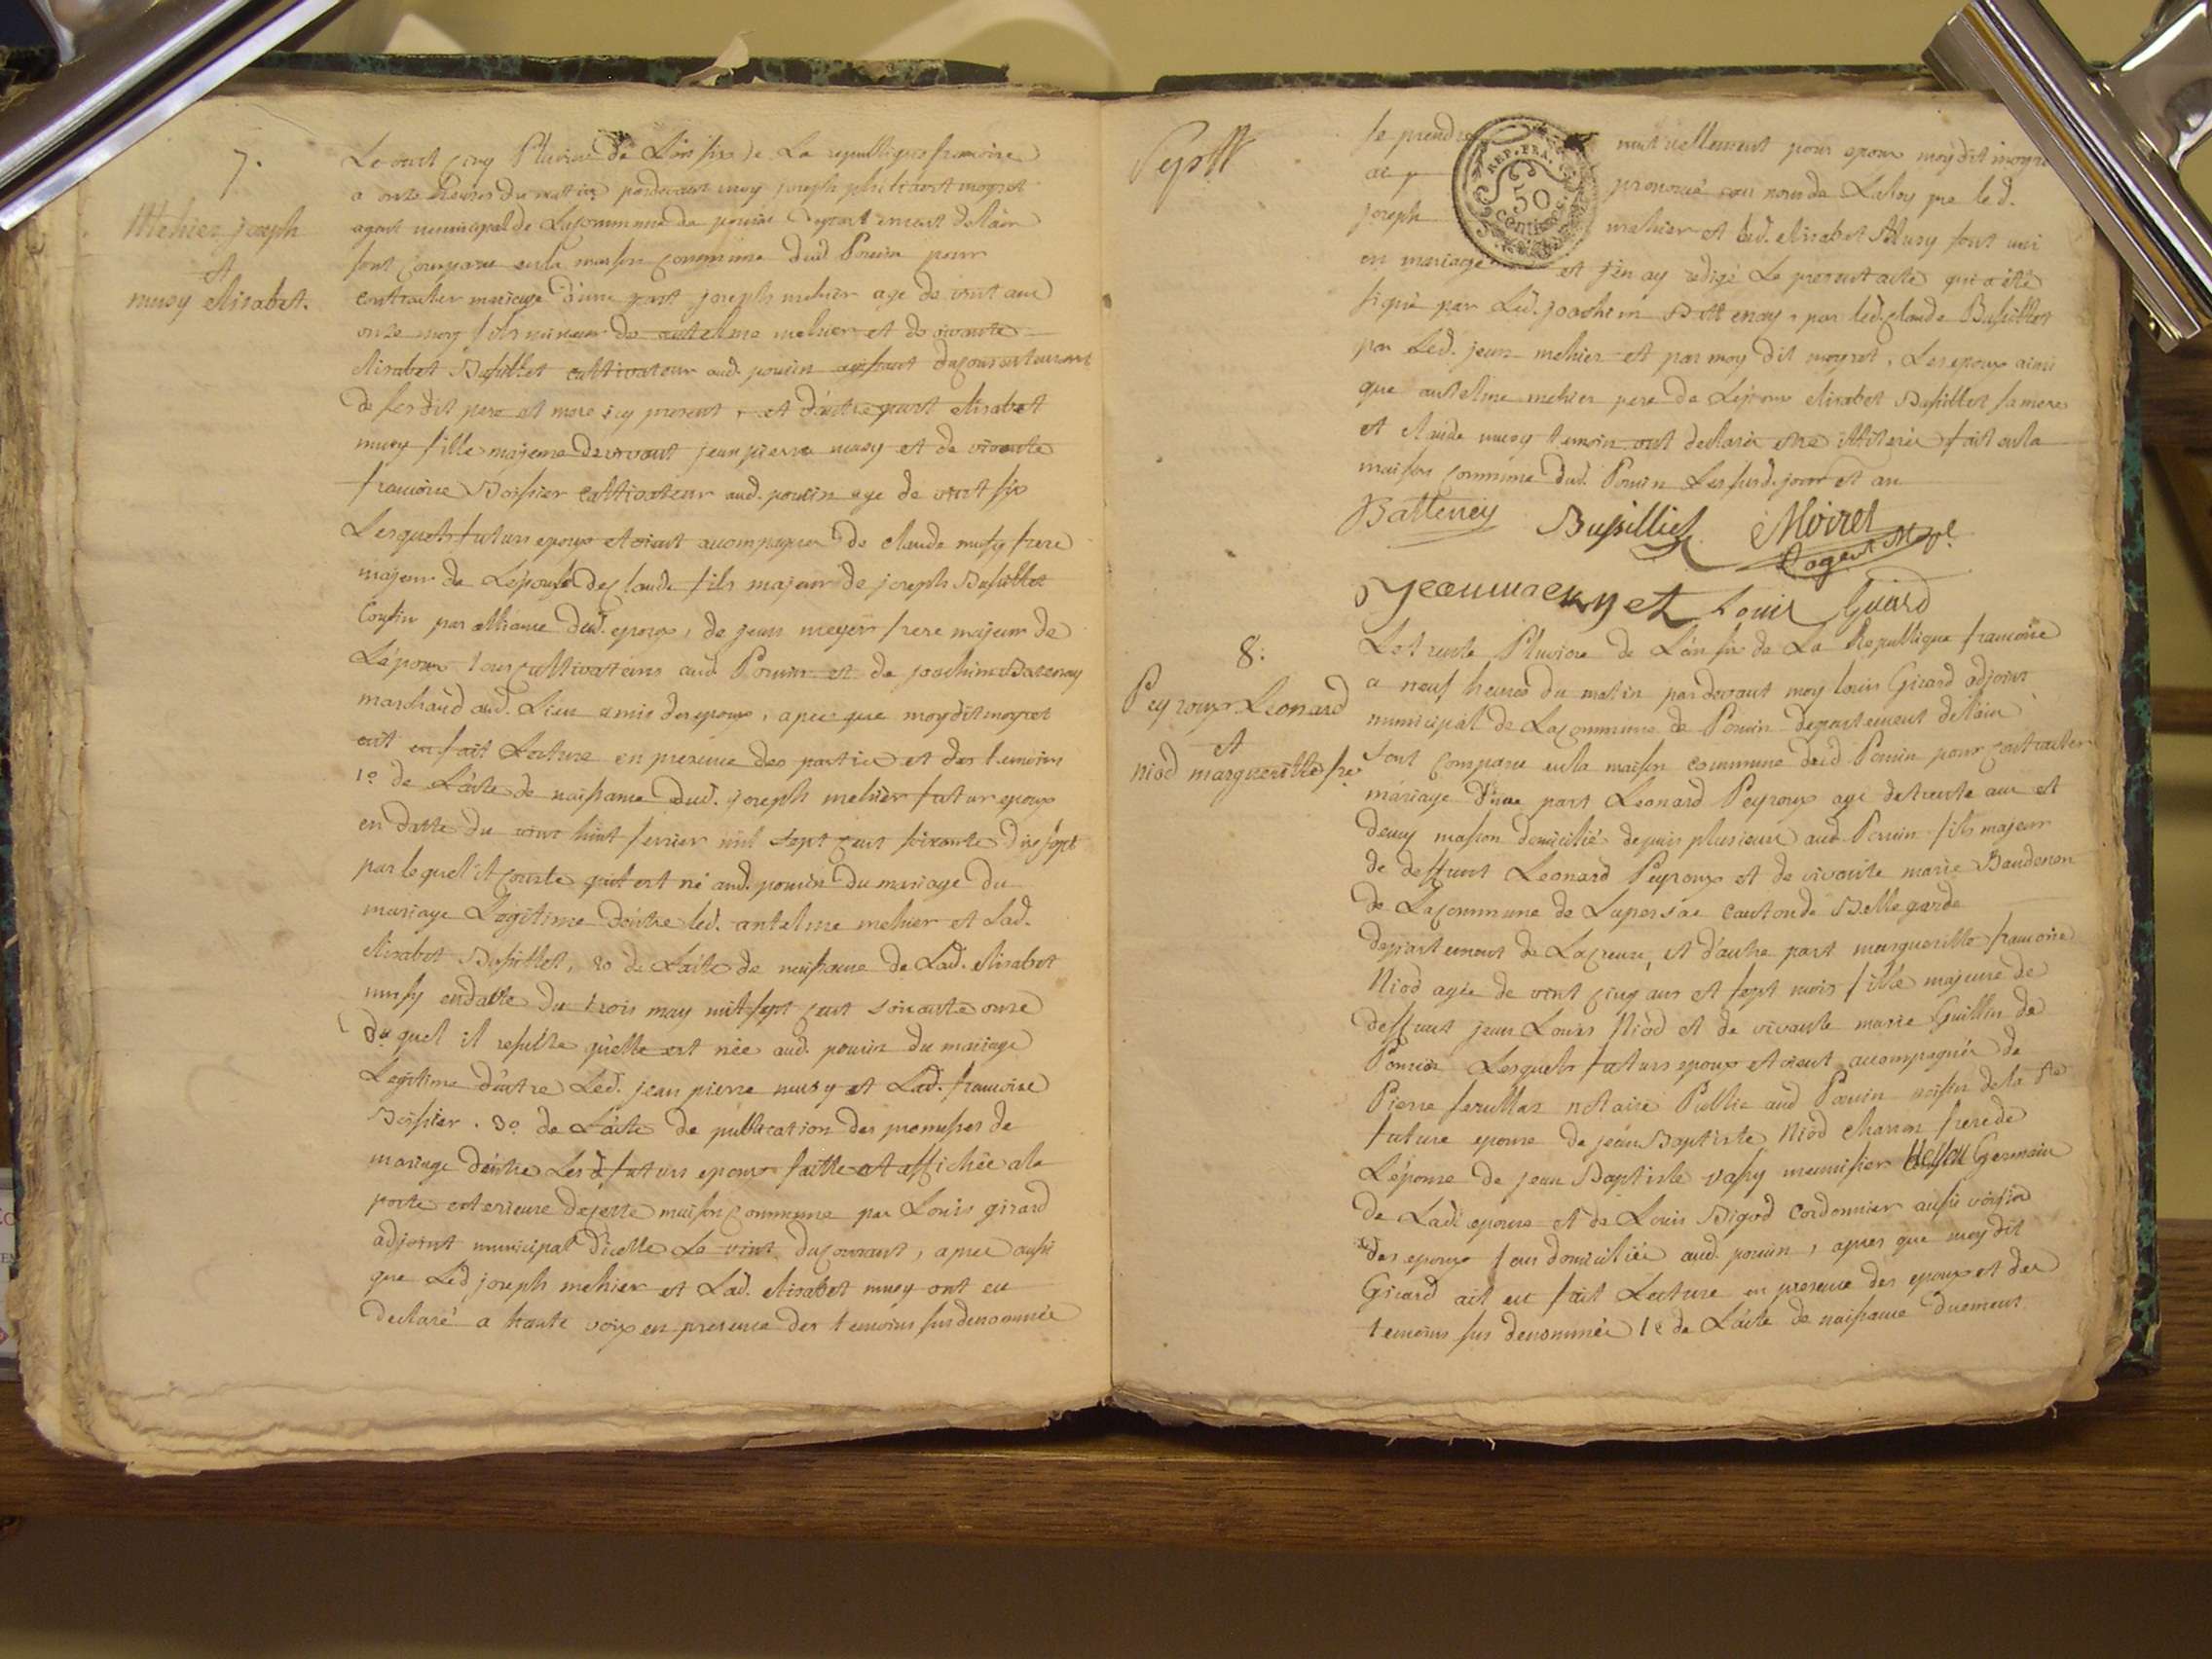 7.
Mehier joseph
et
musy elisabet.
Le vint cinq Pluviose de L'an six de La republique francoise
a onze heures du matin pardevant moy joseph philibert moyret
agent municipal de Lacommune de pouin departement delain
sont comparu enla maison commune dud Pouin pour
contracter mariage d'une part joseph mehier age de vint ans
onze moy fils mineur de antelme mehier et de vivante
elisabet Busillet cultivateur aud. pouin du consentement
de ses dit pere et mere icy present, et d'autre part elisabet
musy fille majeure de vivant jean pierre musy et de vivante
francoise Boissier cultivateur aud. pouin age de vint six
Lesquels futurs epoux etoient accompagnes de claude musy frere
majeur de L'epouse de claude fils majeur de joseph Busillet
Cousin par alliance dud. epoux, de jean meyer frere majeur de
L'epoux tous cultivateurs aud. Pouin et de joachim Batenay
marchand aud. Lieu amis des epoux, apres que moy dit moyret
ait eu fait Lecture en presence des parties et des temoins
1º de L'acte de naissance dud. joseph mehier futur epoux
en datte du vint huit fevrier mil sept cent soixante dix sept
par lequel il conste quil est né aud. pouin du mariage du
mariage Legitime d'entre led. antelme mehier et Lad.
elisabet Busillet, 2o de L'acte de naissance de Lad. elisabet
musy endatte du trois may mil sept cent soixante onze
du quel il resulte qu'elle est née aud. pouin du mariage
Legitime d'entre Led. jean pierre musy et Lad. francoise
Boissier. 3o de L'acte de publication des promesses de
mariage d'entre Lesd futurs epoux faitte et affichée ala
porte exterieure de cette maison commune par Louis girard
adjoint municipal d'icelle Le vint du courant, apres aussi
que Led joseph mehier et Lad. elisabet musy ont eu
declaré a haute voix en presence des temoins susdenommés
se prendre mutuellement pour epoux moy dit moyret
ay prononcé au nom de La loy que led.
joseph mehier et lad. elisabet Musy sont uni
en mariage et j'en ay redigé Le present acte qui a été
signé par Led. joachim Battenay, par led. claude Busillet
par Led. jean mehier et par moy dit moyret, Les epoux ainsi
que antelme mehier pere de Lepoux elisabet Busillet sa mere
et claude musy temoin ont declaré etre illiterés fait enla
maison commune dud. Pouin Les susd. jour et an
REP. FRA.
50
centimes
Batteney Busilliet Moiret
L'agent Mpl
Louis Girard
8.
Peyroux Leonard
et
niod margueritte fse
Le trente Pluviose de L'an six de La Republique francoise
a neuf heures du matin par devant moy louis Girard adjoint
municipal de Lacommune de Pouin departement delain
sont comparu enla maison commune dud Pouin pour contracter
mariage d'une part Leonard Peyroux agé de trente ans et
demy masson domicilié depuis plusieurs aud. Pouin fils majeur
de deffunt Leonard Peyroux et de vivante marie Baudenon
de Lacommune de Lupersac canton de Bellegarde
departement de Lacreuse, et d'autre part margueritte francoise
Niod agée de vint cinq ans et sept mois fille majeure de
deffunt jean Louis Niod et de vivante marie Guillin de
Pouin Lesquels futurs epoux etoient accompagnés de
Pierre notaire Public aud Pouin voisin dela de
future epouse de jean Baptiste Niod charon frere de
L'epouse de jean Baptiste vasy menuisier Germain
de Lade epouse et de Louis Bigod Cordonnier aussi voisin
des epoux tous domiciliés aud. pouin, apres que moy dit
Girard ait eu fait Lecture en presence des epoux et des
temoins sus denommés 1e de L'acte de naissance duement